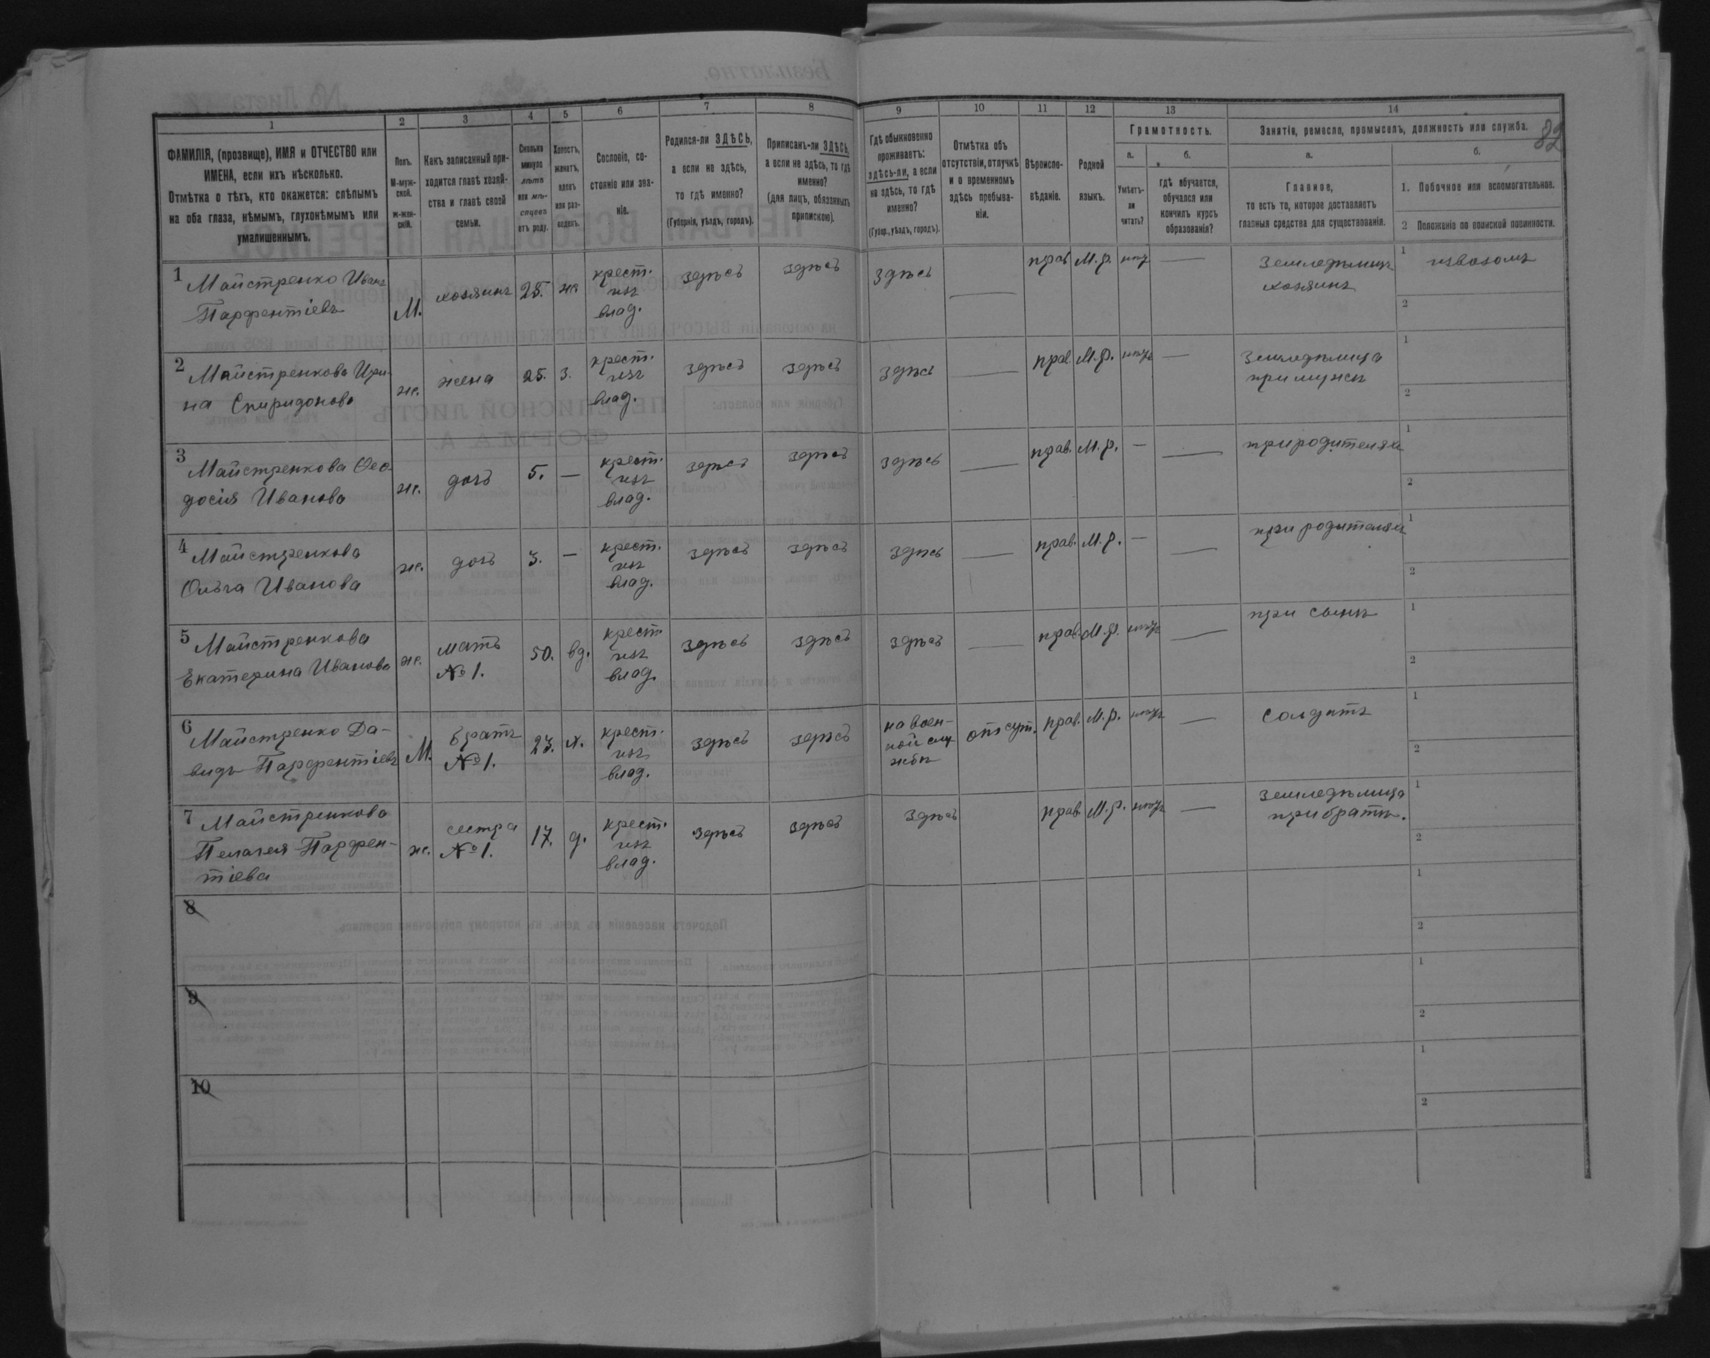 82
1 2 3 4 5 6 7 8 9 10 11 12 13 14
ФАМИЛІЯ, (прозвище), ИМЯ и ОТЧЕСТВО или
ИМЕНА, если ихъ нѣсколько.
Отмѣтка о тѣхъ, кто окажется: слѣпымъ
на оба глаза, нѣмымъ, глухонѣмымъ или
умалишеннымъ.
Полъ.
М-муж-
ской.
ж-жен-
скій.
Какъ записанный при-
ходится главѣ хозяй-
ства и главѣ своей
семьи.
Сколько
минуло
лѣтъ
или мѣ-
сяцевъ
отъ роду.
Холостъ,
женатъ,
вдовъ
или раз-
веденъ.
Сословіе, со-
стояніе или зва-
ніе.
Родился-ли ЗДѢСЬ,
а если не здѣсь,
то гдѣ именно?
(Губернія, уѣздъ, городъ).
Приписанъ-ли ЗДѢСЬ,
а если не здѣсь, то гдѣ
именно?
(для лицъ, обязанныхъ
припискою).
Гдѣ обыкновенно
проживаетъ:
здѣсь-ли, а если
не здѣсь, то гдѣ
именно?
(Губер., уѣздъ, городъ).
Отмѣтка объ
отсутствіи, отлучкѣ
и о временномъ
здѣсь пребыва-
ніи.
Вѣроиспо-
вѣданіе.
Родной
языкъ.
Грамотность.
а.
Умѣетъ-
ли
читать?
б.
гдѣ обучается,
обучался или
кончилъ курсъ
образованія?
Занятія, ремесло, промыселъ, должность или служба.
а.
Главное,
то есть то, которое доставляетъ
главныя средства для существованія.
б.
1. Побочное или вспомогательное.
2 Положеніе по воинской повинности.
1 Майстренко Иванъ
Парфентіевъ
М. хозяинъ 28. ж. крест.
изъ
влад.
здѣсь здѣсь здѣсь — прав. М.р. нѣтъ — Земледѣлецъ
хозяинъ
1 извозомъ
2
2 Майстренкова Ири-
на Спиридонова
ж. жена 25. з. крест.
изъ
влад.
здѣсь здѣсь здѣсь — прав. М.р. нѣтъ — земледѣлица
при мужѣ
1
2
3 Майстренкова Фео-
досія Иванова
ж. дочь 5. — крест.
изъ
влад.
здѣсь здѣсь здѣсь — прав. М.р. — — при родителяхъ
1
2
4 Майстренкова
Ольга Иванова
ж. дочь 3. — крест.
изъ
влад.
здѣсь здѣсь здѣсь — прав. М.р. — — при родителяхъ
1
2
5 Майстренкова
Екатерина Иванова
ж. мать
№ 1.
50. вд. крест
изъ
влад.
здѣсь здѣсь здѣсь — прав. М.р. нѣтъ — при сынѣ
1
2
6 Майстренко Да-
видъ Парфентіевъ
М. братъ
№ 1.
23. х. крест.
изъ
влад.
здѣсь здѣсь на воен-
ной слу
жбѣ
отсут. прав. М.р. нѣтъ — солдатъ
1
2
7 Майстренкова
Пелагея Парфен-
тіева
ж. сестра
№ 1.
17. д. крест.
изъ
влад.
здѣсь здѣсь здѣсь прав. М.р. нѣтъ — земледѣлица
при братѣ.
1
2
8
1
2
9
1
2
10
1
2